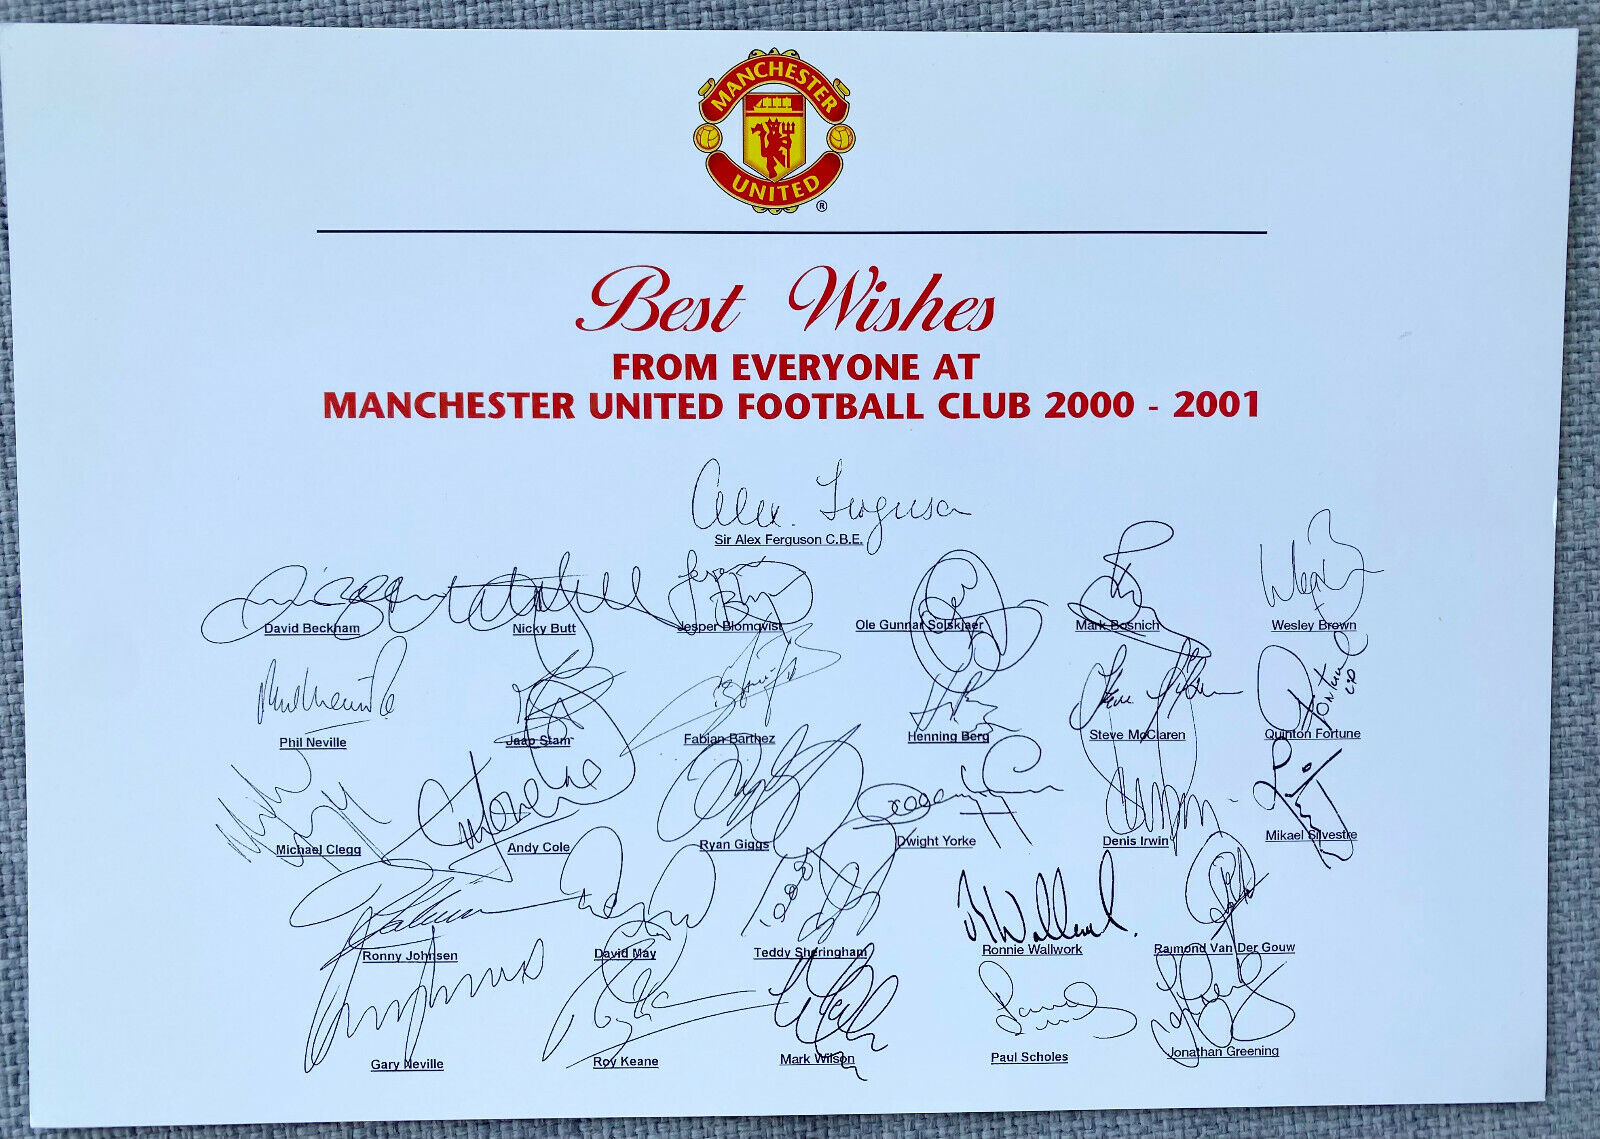 MANCHESTER
UNITED
®
Best Wishes
FROM EVERYONE AT
MANCHESTER UNITED FOOTBALL CLUB 2000 - 2001
Alex Ferguson
Sir Alex Ferguson C.B.E.
David Beckham Nicky Butt Jesper Blomqvist Ole Gunnar Solskjaer Mark Bosnich Wesley Brown
Phil Neville Jaap Stam Fabian Barthez Henning Berg Steve McClaren Quinton Fortune
Michael Clegg Andy Cole Ryan Giggs Dwight Yorke Denis Irwin Mikael Silvestre
Ronny Johnsen David May Teddy Sheringham Ronnie Wallwork Raimond Van Der Gouw
Gary Neville Roy Keane Mark Wilson Paul Scholes Jonathan Greening